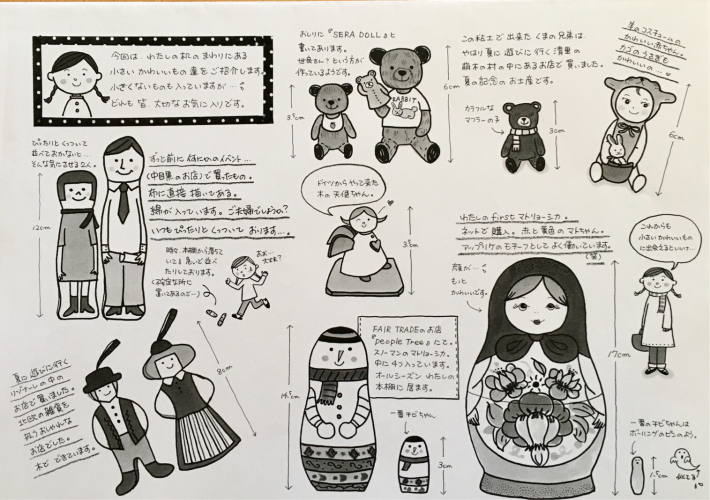 今回は、わたしの机のまわりにある
小さいかわいいもの達をご紹介します。
小さくないものも入っていますが…
どれも皆、大切なお気に入りです。
おしりに『SERA DOLL』と
書いてあります。
世良さん?という方が
作っているようです。
3.5cm
RABBIT
6cm
この粘土で出来たくまの兄弟は、
やはり夏に遊びに行く清里の
萌木の村の中にあるお店で買いました。
夏の記念のお土産です。
カラフルな
マフラーの子
3cm
羊のコスチュームの
かわいい赤ちゃん。
カゴのうさぎも
かわいいの…
6cm
ぴったりとくっついて
並べておかないと…
そんな気にさせる2人。
12cm
ずっと前に何だかのイベント…
(中目黒のお店)で買ったもの。
布に直接描いてある。
綿が入っています。ご夫婦でしょうか?
いつもぴったりとくっついております…
時々、本棚から落ちて
いると急いで並べ
たりしております。
(不安定な所に
置いてあるので…)
あぁ…
大丈夫?
ドイツからやって来た
木の天使ちゃん。
3.5cm
わたしのfirstマトリョーシカ。
ネットで購入。赤と黄色のマトちゃん。
アップリケのモチーフとしてよく働いています。
(笑)
顔が…
もっと
かわいいです。
17cm
これからも
小さいかわいいもの
に出会えるといい…
夏に遊びに行く
リゾナーレの中の
お店で買いました。
北欧の雑貨を
扱うおしゃれな
お店でした。
木でできています。
8cm
14.5cm
FAIR TRADEのお店
『People Tree』にて。
スノーマンのマトリョーシカ。
中に4つ入っています。
オールシーズンわたしの
本棚に居ます。
一番チビちゃん
3cm
一番のチビちゃんは
ボーリングのピンのよう。
1.5cm